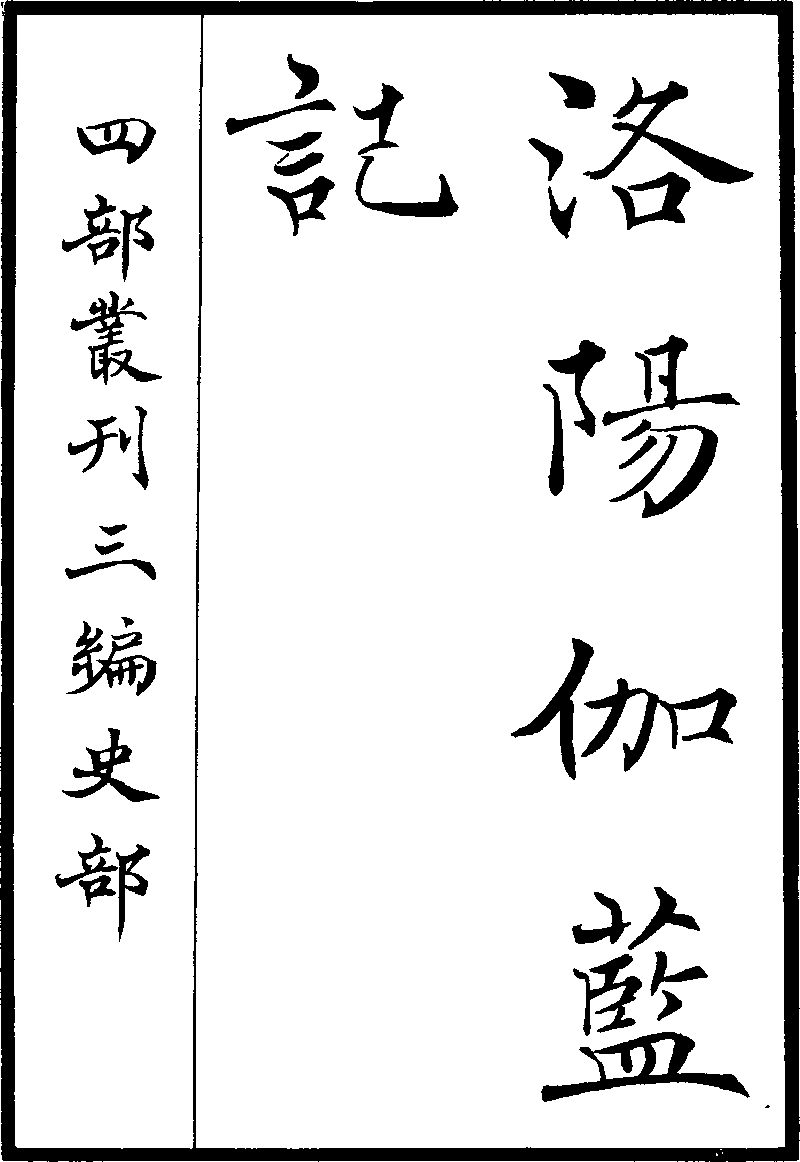 洛陽伽藍
記
四部叢刊三編史部